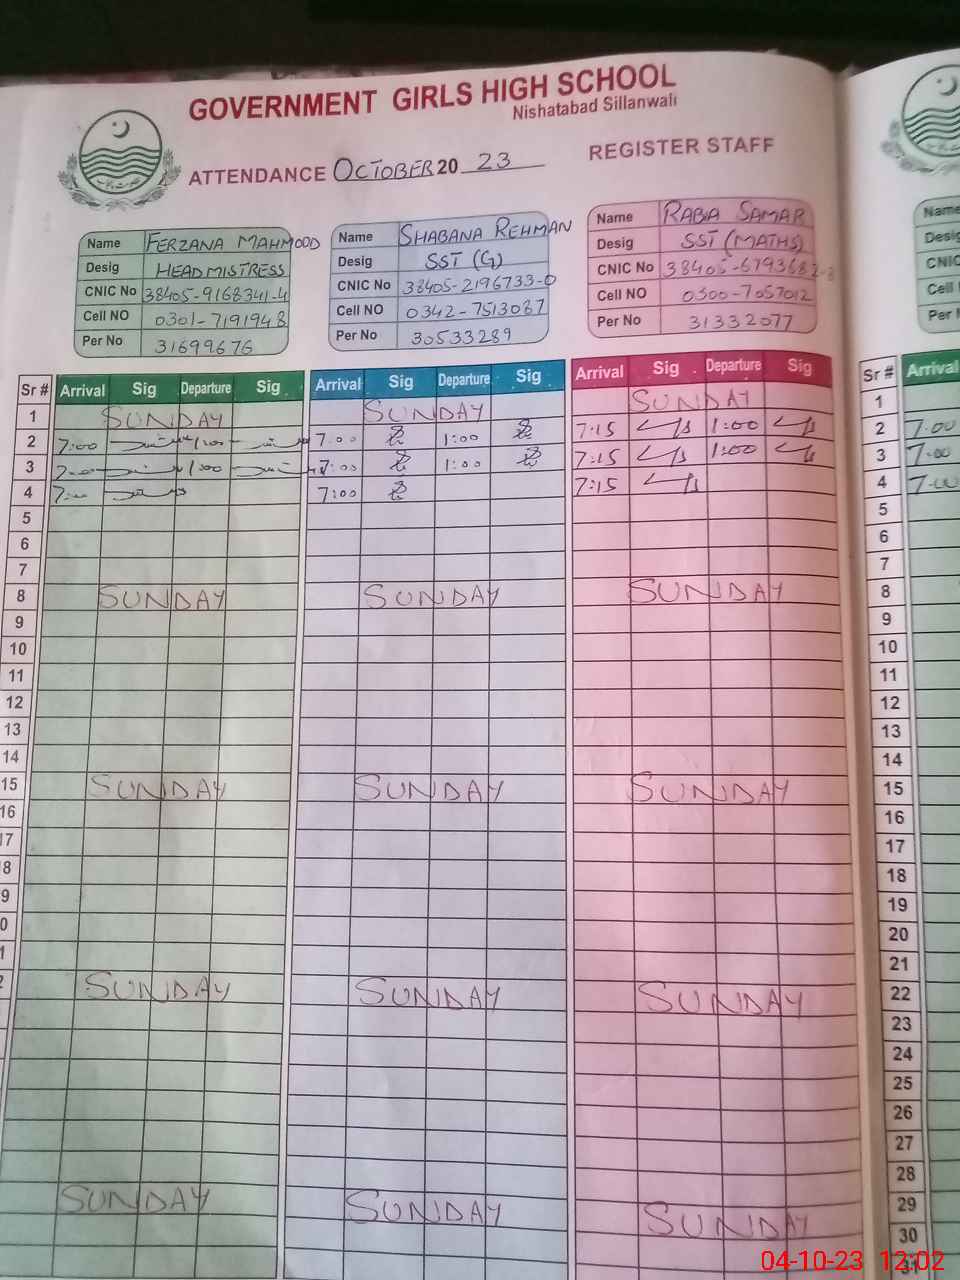 GOVERNMENT GIRLS HIGH SCHOOL
Nishatabad Sillanwali
ATTENDANCE OCTOBER 20 23 REGISTER STAFF
Name FERZANA MAHMOOD
Desig HEADMISTRESS
CNIC No 38405-9168341-4
Cell NO 0301-7191948
Per No 31699676
Name SHABANA REHMAN
Desig SST (G)
CNIC No 38405-2196733-0
Cell NO 0342-7513087
Per No 30533289
Name RABIA SAMAR
Desig SST (MATHS)
CNIC No 38405-6793682-8
Cell NO 0300-7057012
Per No 31332077
Name
Desig
CNIC
Cell
Per
Sr # Arrival Sig Departure Sig Arrival Sig Departure Sig Arrival Sig Departure Sig Sr # Arrival
1 SUNDAY SUNDAY SUNDAY 1
2 7:00 1:00 7:00 1:00 7:15 1:00 2 7:00
3 7:00 1:00 7:00 1:00 7:15 1:00 3 7:00
4 7:00 7:00 7:15 4 7:00
5 5
6 6
7 7
8 SUNDAY SUNDAY SUNDAY 8
9 9
10 10
11 11
12 12
13 13
14 14
15 SUNDAY SUNDAY SUNDAY 15
16 16
17 17
8 18
9 19
0 20
1 21
2 SUNDAY SUNDAY SUNDAY 22
23
24
25
26
27
28
SUNDAY SUNDAY SUNDAY 29
30
31
04-10-23 12:02